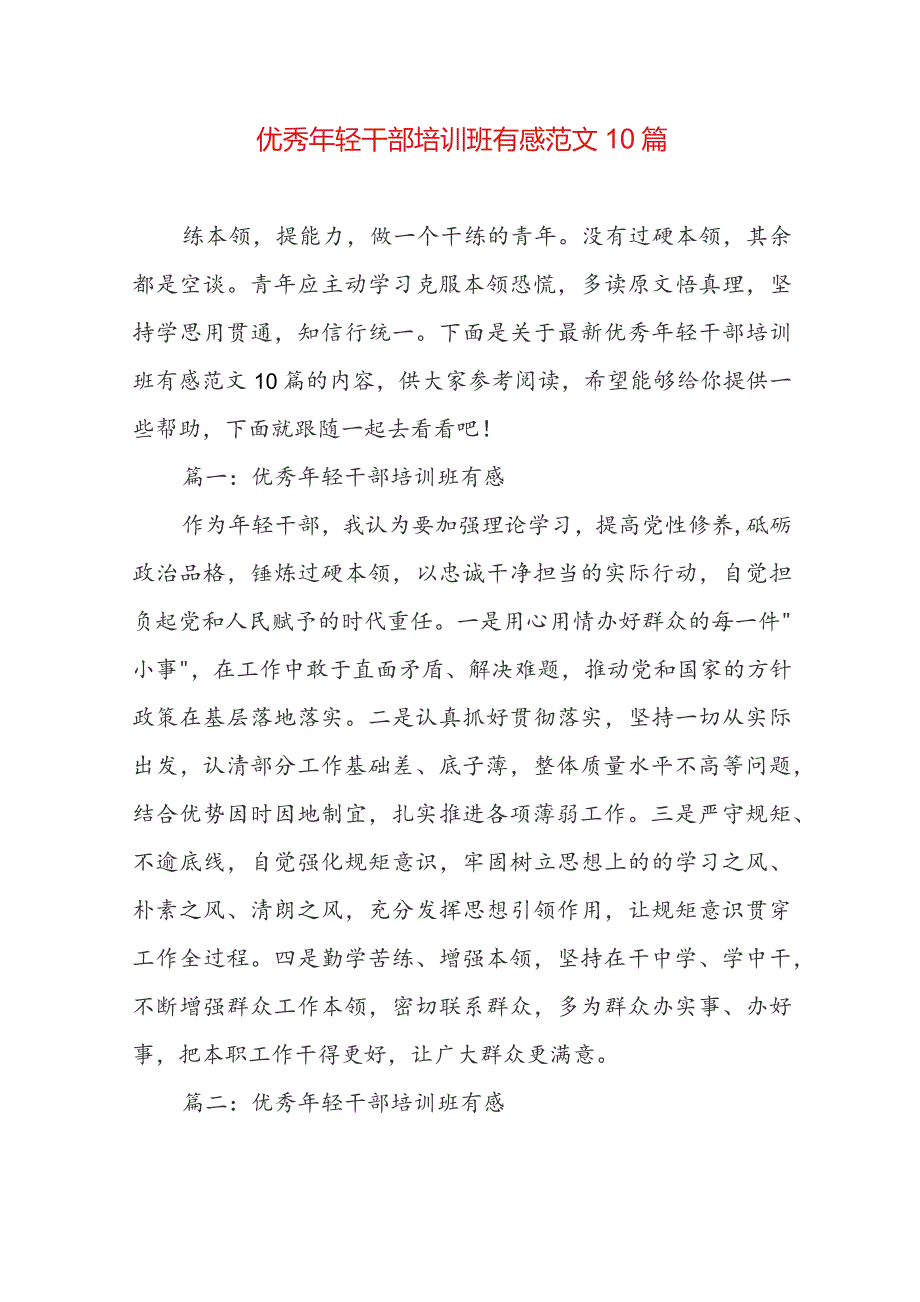 优秀年轻干部培训班有感范文 10 篇
练本领，提能力，做一个干练的青年。没有过硬本领，其余
都是空谈。青年应主动学习克服本领恐慌，多读原文悟真理，坚
持学思用贯通，知信行统一。下面是关于最新优秀年轻干部培训
班有感范文 10 篇的内容，供大家参考阅读，希望能够给你提供一
些帮助，下面就跟随一起去看看吧！
篇一：优秀年轻干部培训班有感
作为年轻干部，我认为要加强理论学习，提高党性修养,砥砺
政治品格，锤炼过硬本领，以忠诚干净担当的实际行动，自觉担
负起党和人民赋予的时代重任。一是用心用情办好群众的每一件"
小事"，在工作中敢于直面矛盾、解决难题，推动党和国家的方针
政策在基层落地落实。二是认真抓好贯彻落实，坚持一切从实际
出发，认清部分工作基础差、底子薄，整体质量水平不高等问题，
结合优势因时因地制宜，扎实推进各项薄弱工作。三是严守规矩、
不逾底线，自觉强化规矩意识，牢固树立思想上的的学习之风、
朴素之风、清朗之风，充分发挥思想引领作用，让规矩意识贯穿
工作全过程。四是勤学苦练、增强本领，坚持在干中学、学中干，
不断增强群众工作本领，密切联系群众，多为群众办实事、办好
事，把本职工作干得更好，让广大群众更满意。
篇二：优秀年轻干部培训班有感